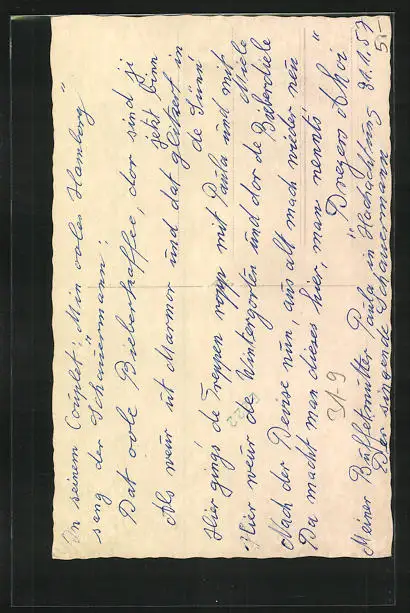 In seinem Couplet: „Min ooles Hamborg"
sang der „Schauermann":
Dat oole Bieberkaffee, dor sind ji
jetzt binn
Als weur ut Marmor und dat glitzert in
de Sünn
Hier gings de Treppen ropp mit Paula und mit
Miele
Hier weur de Wintergorten und dor de Bieberdiele
Nach der Devise nun, aus alt mach wieder neu
Da macht man dieses hier, man nennts "
„Dreyers Ahoi"
Meiner Büffetmutter Paula, in Hochachtung 31.1.57
Der singende Schauermann
31.9